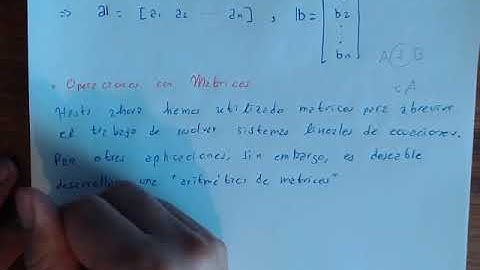 ⇒ a = [a₁ a₂ ⋯ aₙ] , b = [b₂ ⋮ bₙ]
A + B
cA
• Operaciones con Matrices
Hasta ahora hemos utilizado matrices para abreviar
el trabajo de resolver sistemas lineales de ecuaciones.
Para otras aplicaciones, sin embargo, es deseable
desarrollar una "aritmética de matrices"